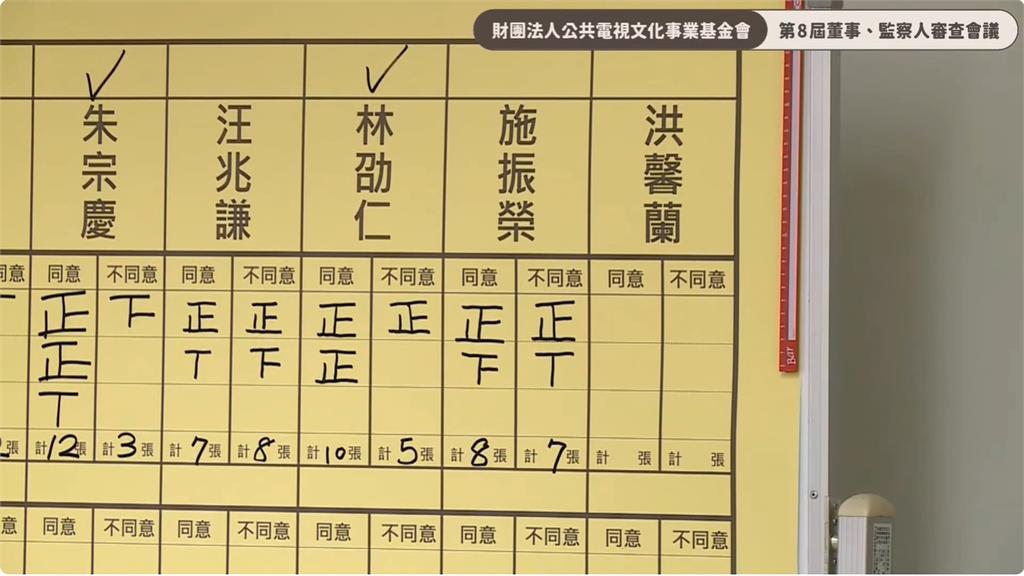 財團法人公共電視文化事業基金會 第8屆董事、監察人審查會議
✓ ✓
朱宗慶 汪兆謙 林劭仁 施振榮 洪馨蘭
同意 同意 不同意 同意 不同意 同意 不同意 同意 不同意 同意 不同意
正 下 正 正 正 正 正 正
正 丅 下 正 下 丅
丅
張 計12張 計3張 計7張 計8張 計10張 計5張 計8張 計7張 計 張 計 張
意 同意 不同意 同意 不同意 同意 不同意 同意 不同意 同意 不同意
Bar